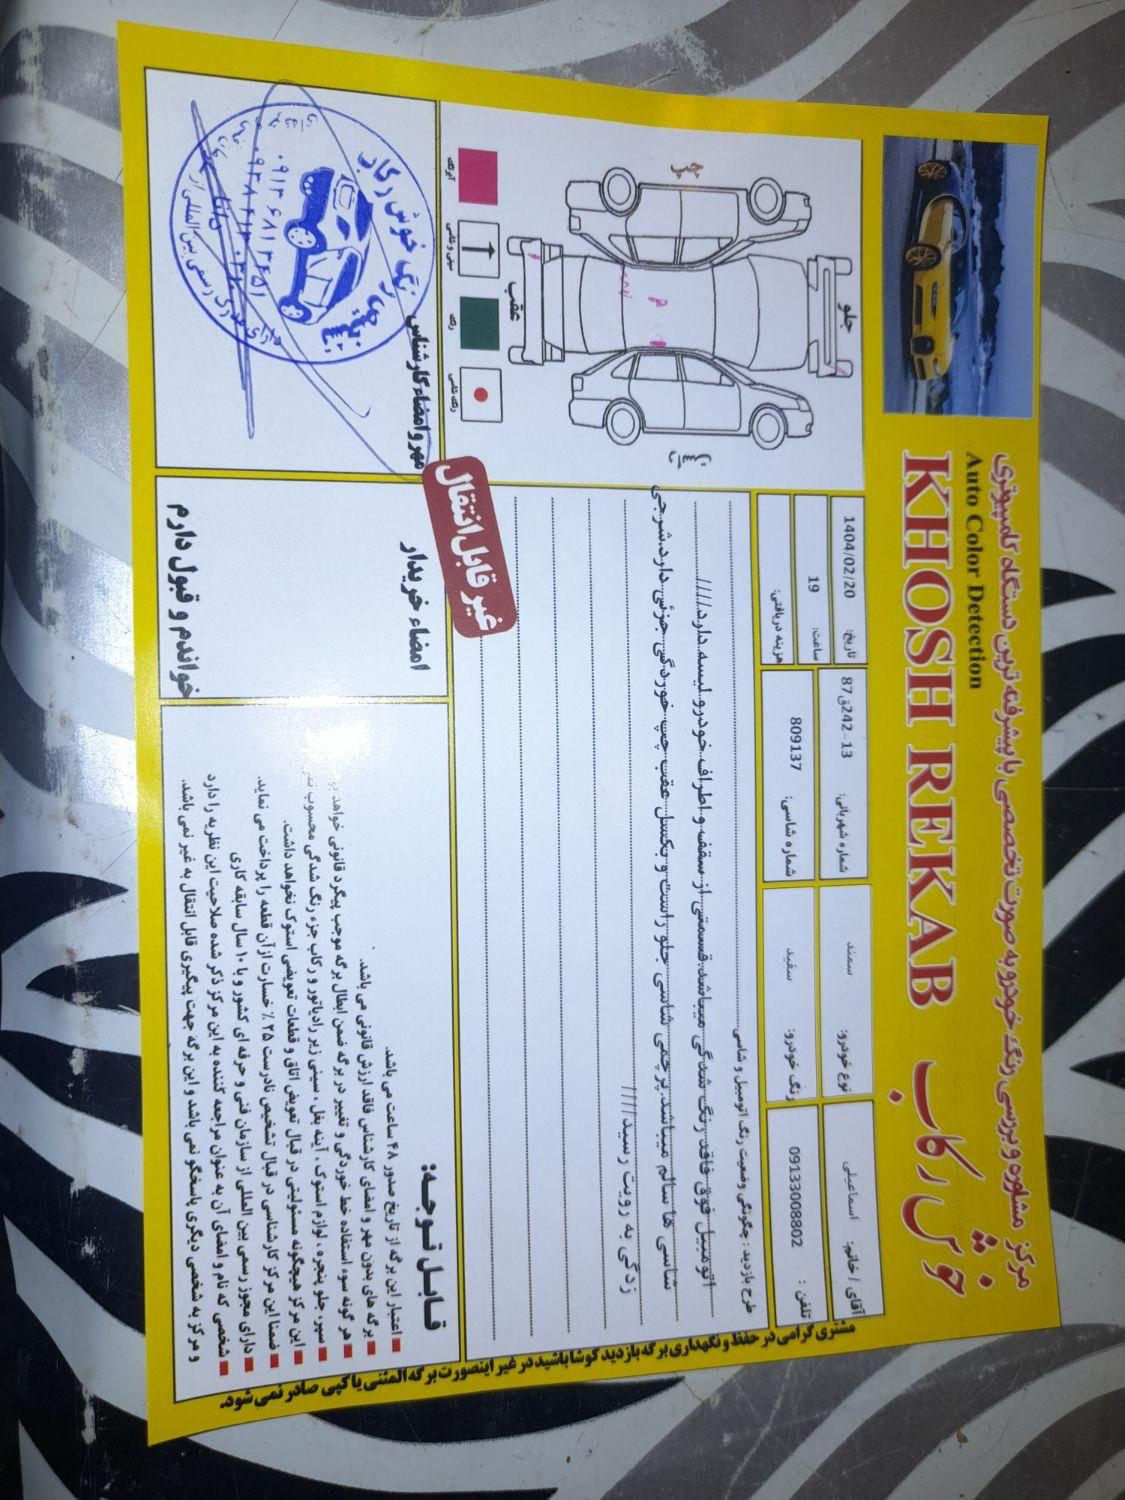 مرکز مشاوره و بررسی رنگ خودرو به صورت تخصصی با پیشرفته ترین دستگاه کامپیوتری
Auto Color Detection
KHOSH REKAB
خوش رکاب
آقای / خانم: اسماعیلی
نوع خودرو: سمند
شماره شهربانی: 13-242ق87
تاریخ: 1404/02/20
تلفن : 09133008802
رنگ خودرو: سفید
شماره شاسی: 809137
ساعت: 19
هزینه دریافتی:
طرح بازدید : چگونگی وضعیت رنگ اتومبیل و شاسی
اتومبیل فوق فاقد رنگ شدگی میباشد.قسمتی از سقف و اطراف خودرو لیسه دارد////
شاسی ها سالم میباشد.پرچمی شاسی جلو راست و بکسل عقب چپ خوردگی جزئی دارد.شرجی
زدگی به رویت رسید////
جلو
عقب
رنگ
غیر قابل انتقال
مهر و امضاء کارشناس
خوش رکاب
امضاء خریدار
خواندم و قبول دارم
قـابـل تـوجـه:
اعتبار این برگه از تاریخ صدور ۴۸ ساعت می باشد.
برگه های بدون مهر و امضای کارشناس فاقد ارزش قانونی می باشد.
هر گونه سوء استفاده خط خوردگی و تغییر در برگه ضمن ابطال برگه موجب پیگرد قانونی خواهد
سپر، جلو پنجره ، لوازم استوک ، آینه بغل ، سینی زیر رادیاتور و رکاب جزء رنگ شدگی محسوب
این مرکز هیچگونه مسئولیتی در قبال تعویض اتاق و قطعات تعویضی استوک نخواهد داشت.
ضمنا این مرکز کارشناسی در قبال تشخیص نادرست ۲۵ ٪ خسارت از آن قطعه را پرداخت می نماید.
دارای مجوز رسمی بین المللی از سازمان فنی و حرفه ای کشور و با ۱۰ سال سابقه کاری
شخصی که نام و امضای آن به عنوان مراجعه کننده به این مرکز ذکر شده صلاحیت این نظریه را دارد
و مرکز به شخصی دیگری پاسخگو نمی باشد و این برگه جهت پیگیری قابل انتقال به غیر نمی باشد.
مشتری گرامی در حفظ و نگهداری برگه بازدید کوشا باشید در غیر اینصورت برگه المثنی یا کپی صادر نمی شود.